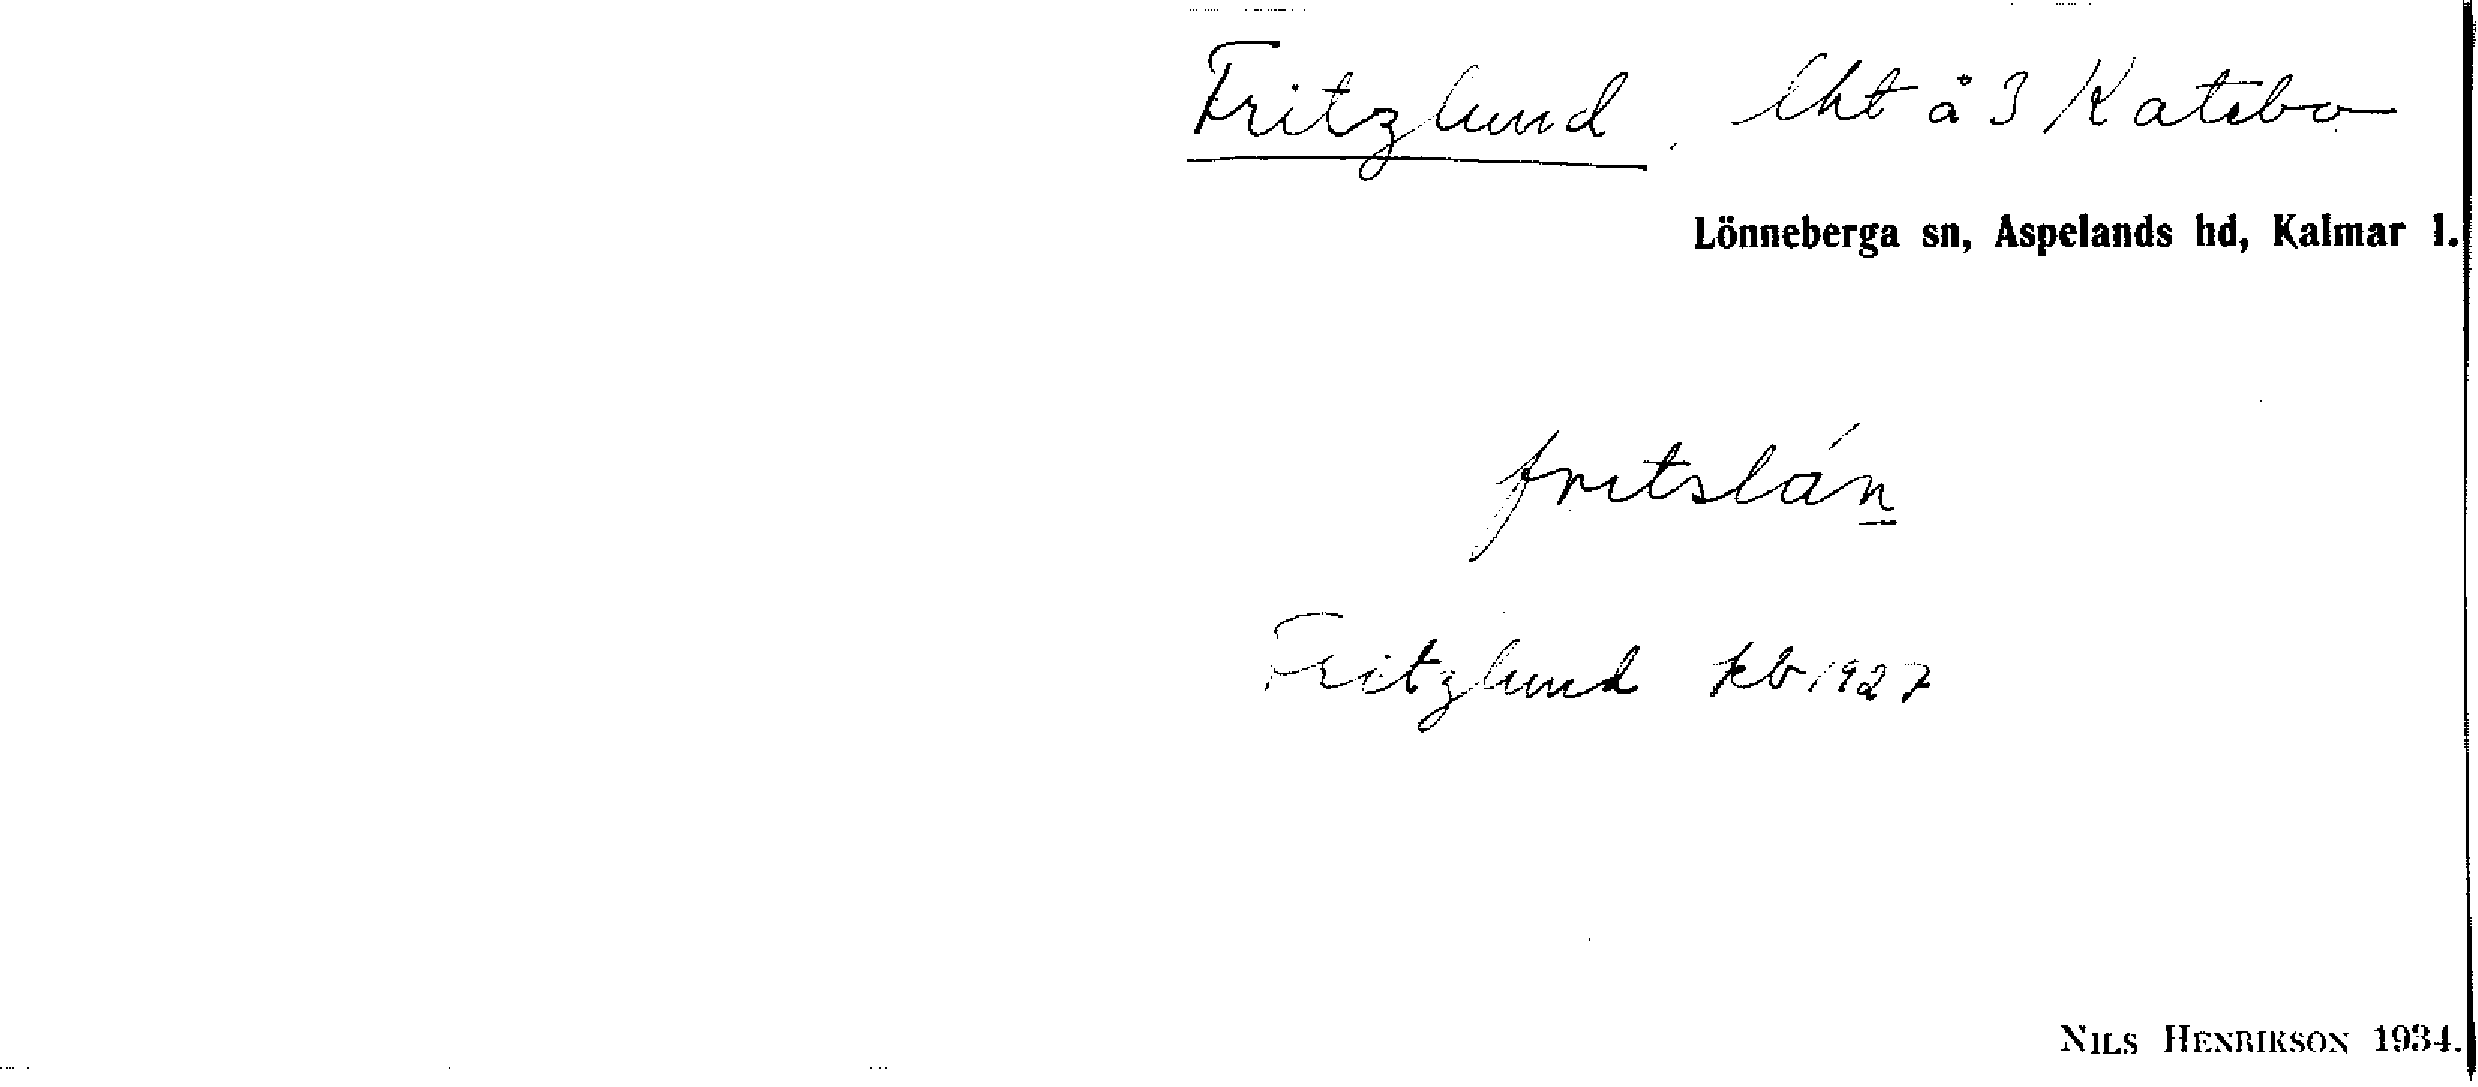 Fritzlund. lht å 3 Katebo
Lönneberga sn, Aspelands hd, Kalmar l.
fritslán
Fritzlund kb 1927
NILS HENRIKSON 1934.